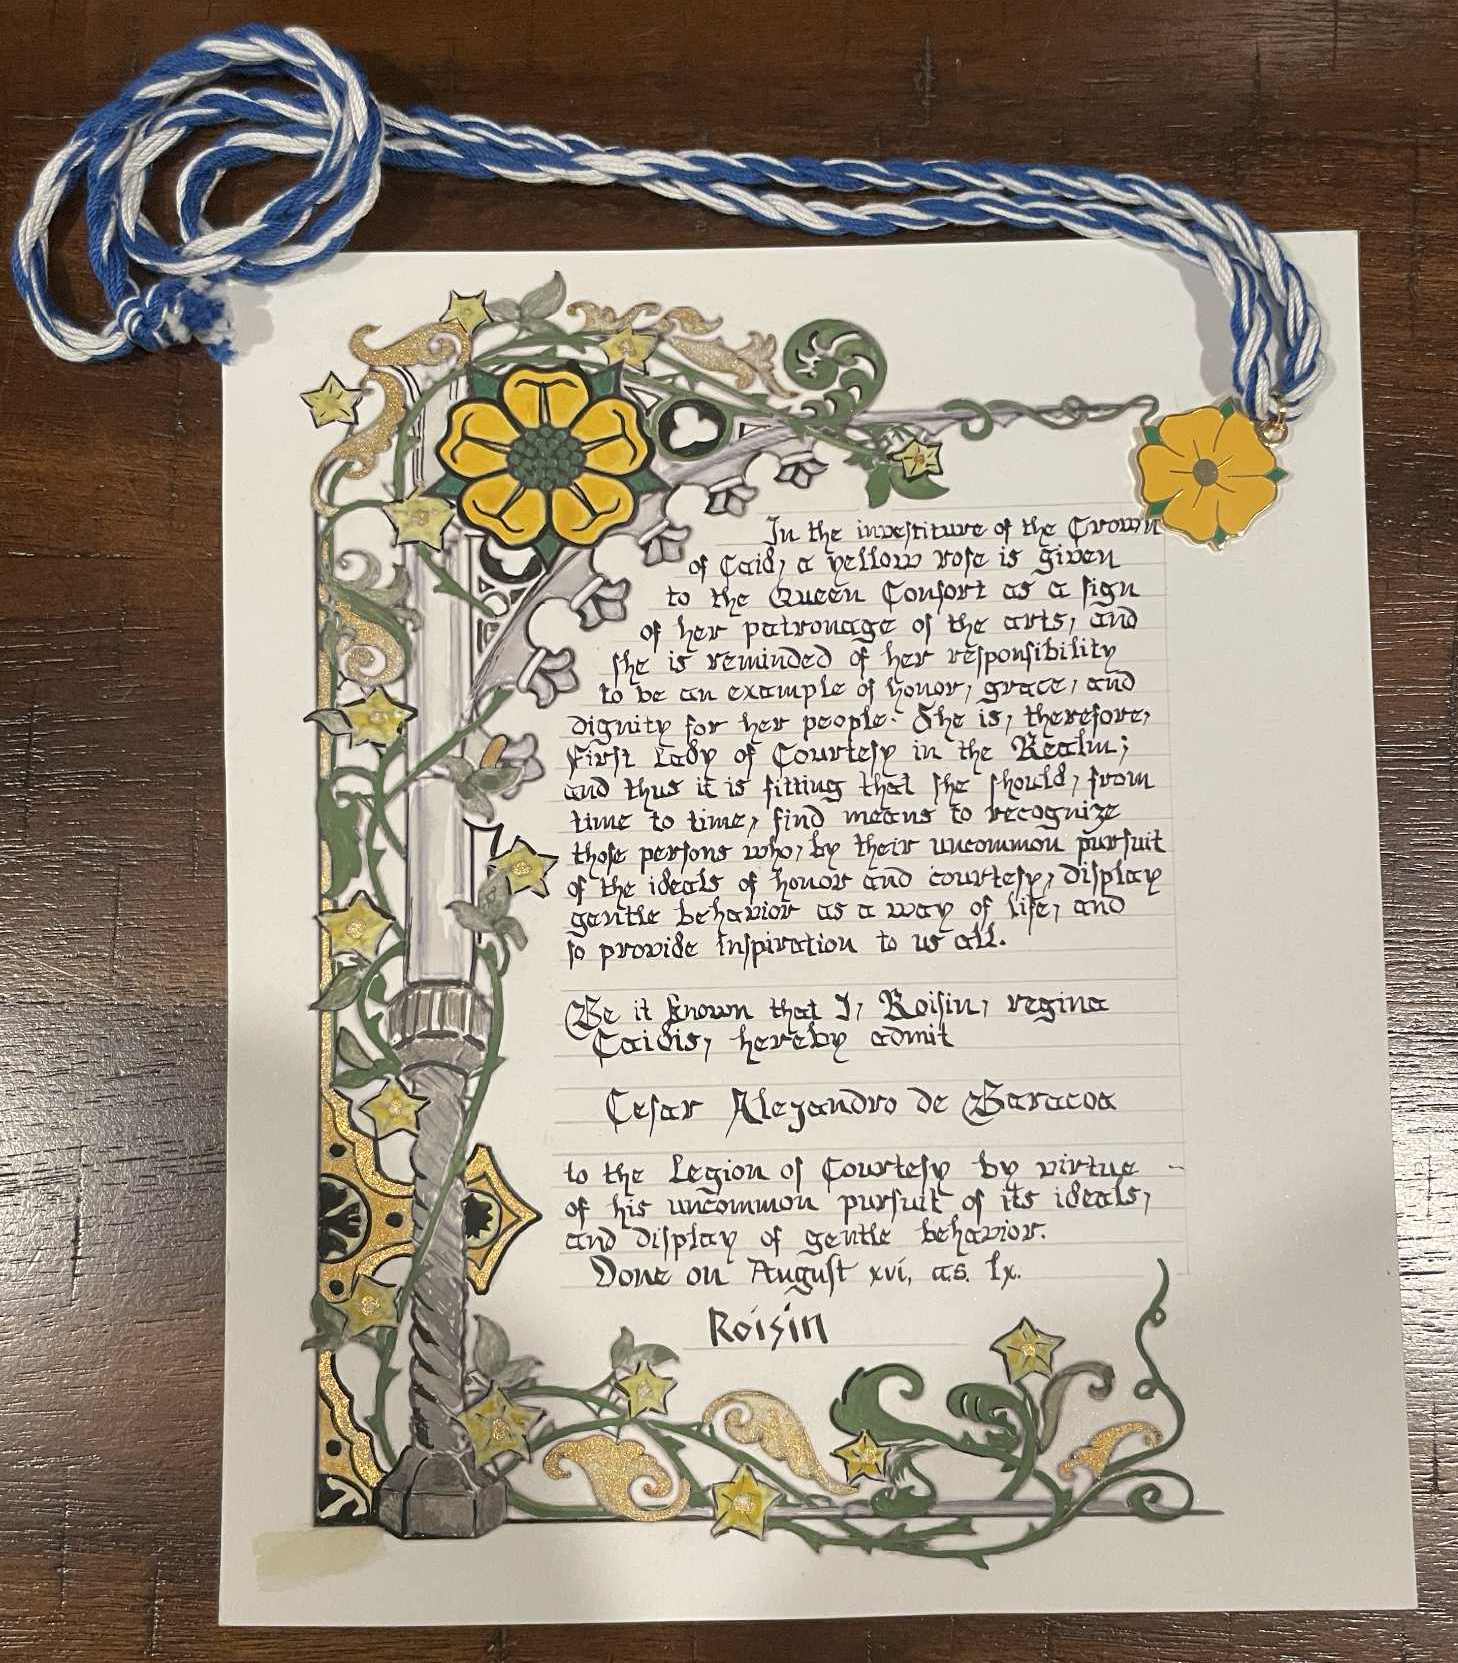 In the investiture of the Crown
of Caid, a yellow rose is given
to the Queen Consort as a sign
of her patronage of the arts, and
she is reminded of her responsibility
to be an example of honor, grace, and
dignity for her people. She is, therefore,
First Lady of Courtesy in the Realm;
and thus it is fitting that she should, from
time to time, find means to recognize
those persons who, by their uncommon pursuit
of the ideals of honor and courtesy, display
gentle behavior as a way of life, and
so provide inspiration to us all.
Be it known that I, Roisin, regina
Caidis, hereby admit
Cesar Alejandro de Baracoa
to the Legion of Courtesy by virtue
of his uncommon pursuit of its ideals,
and display of gentle behavior.
Done on August xvi, a.s. lx.
Roisin